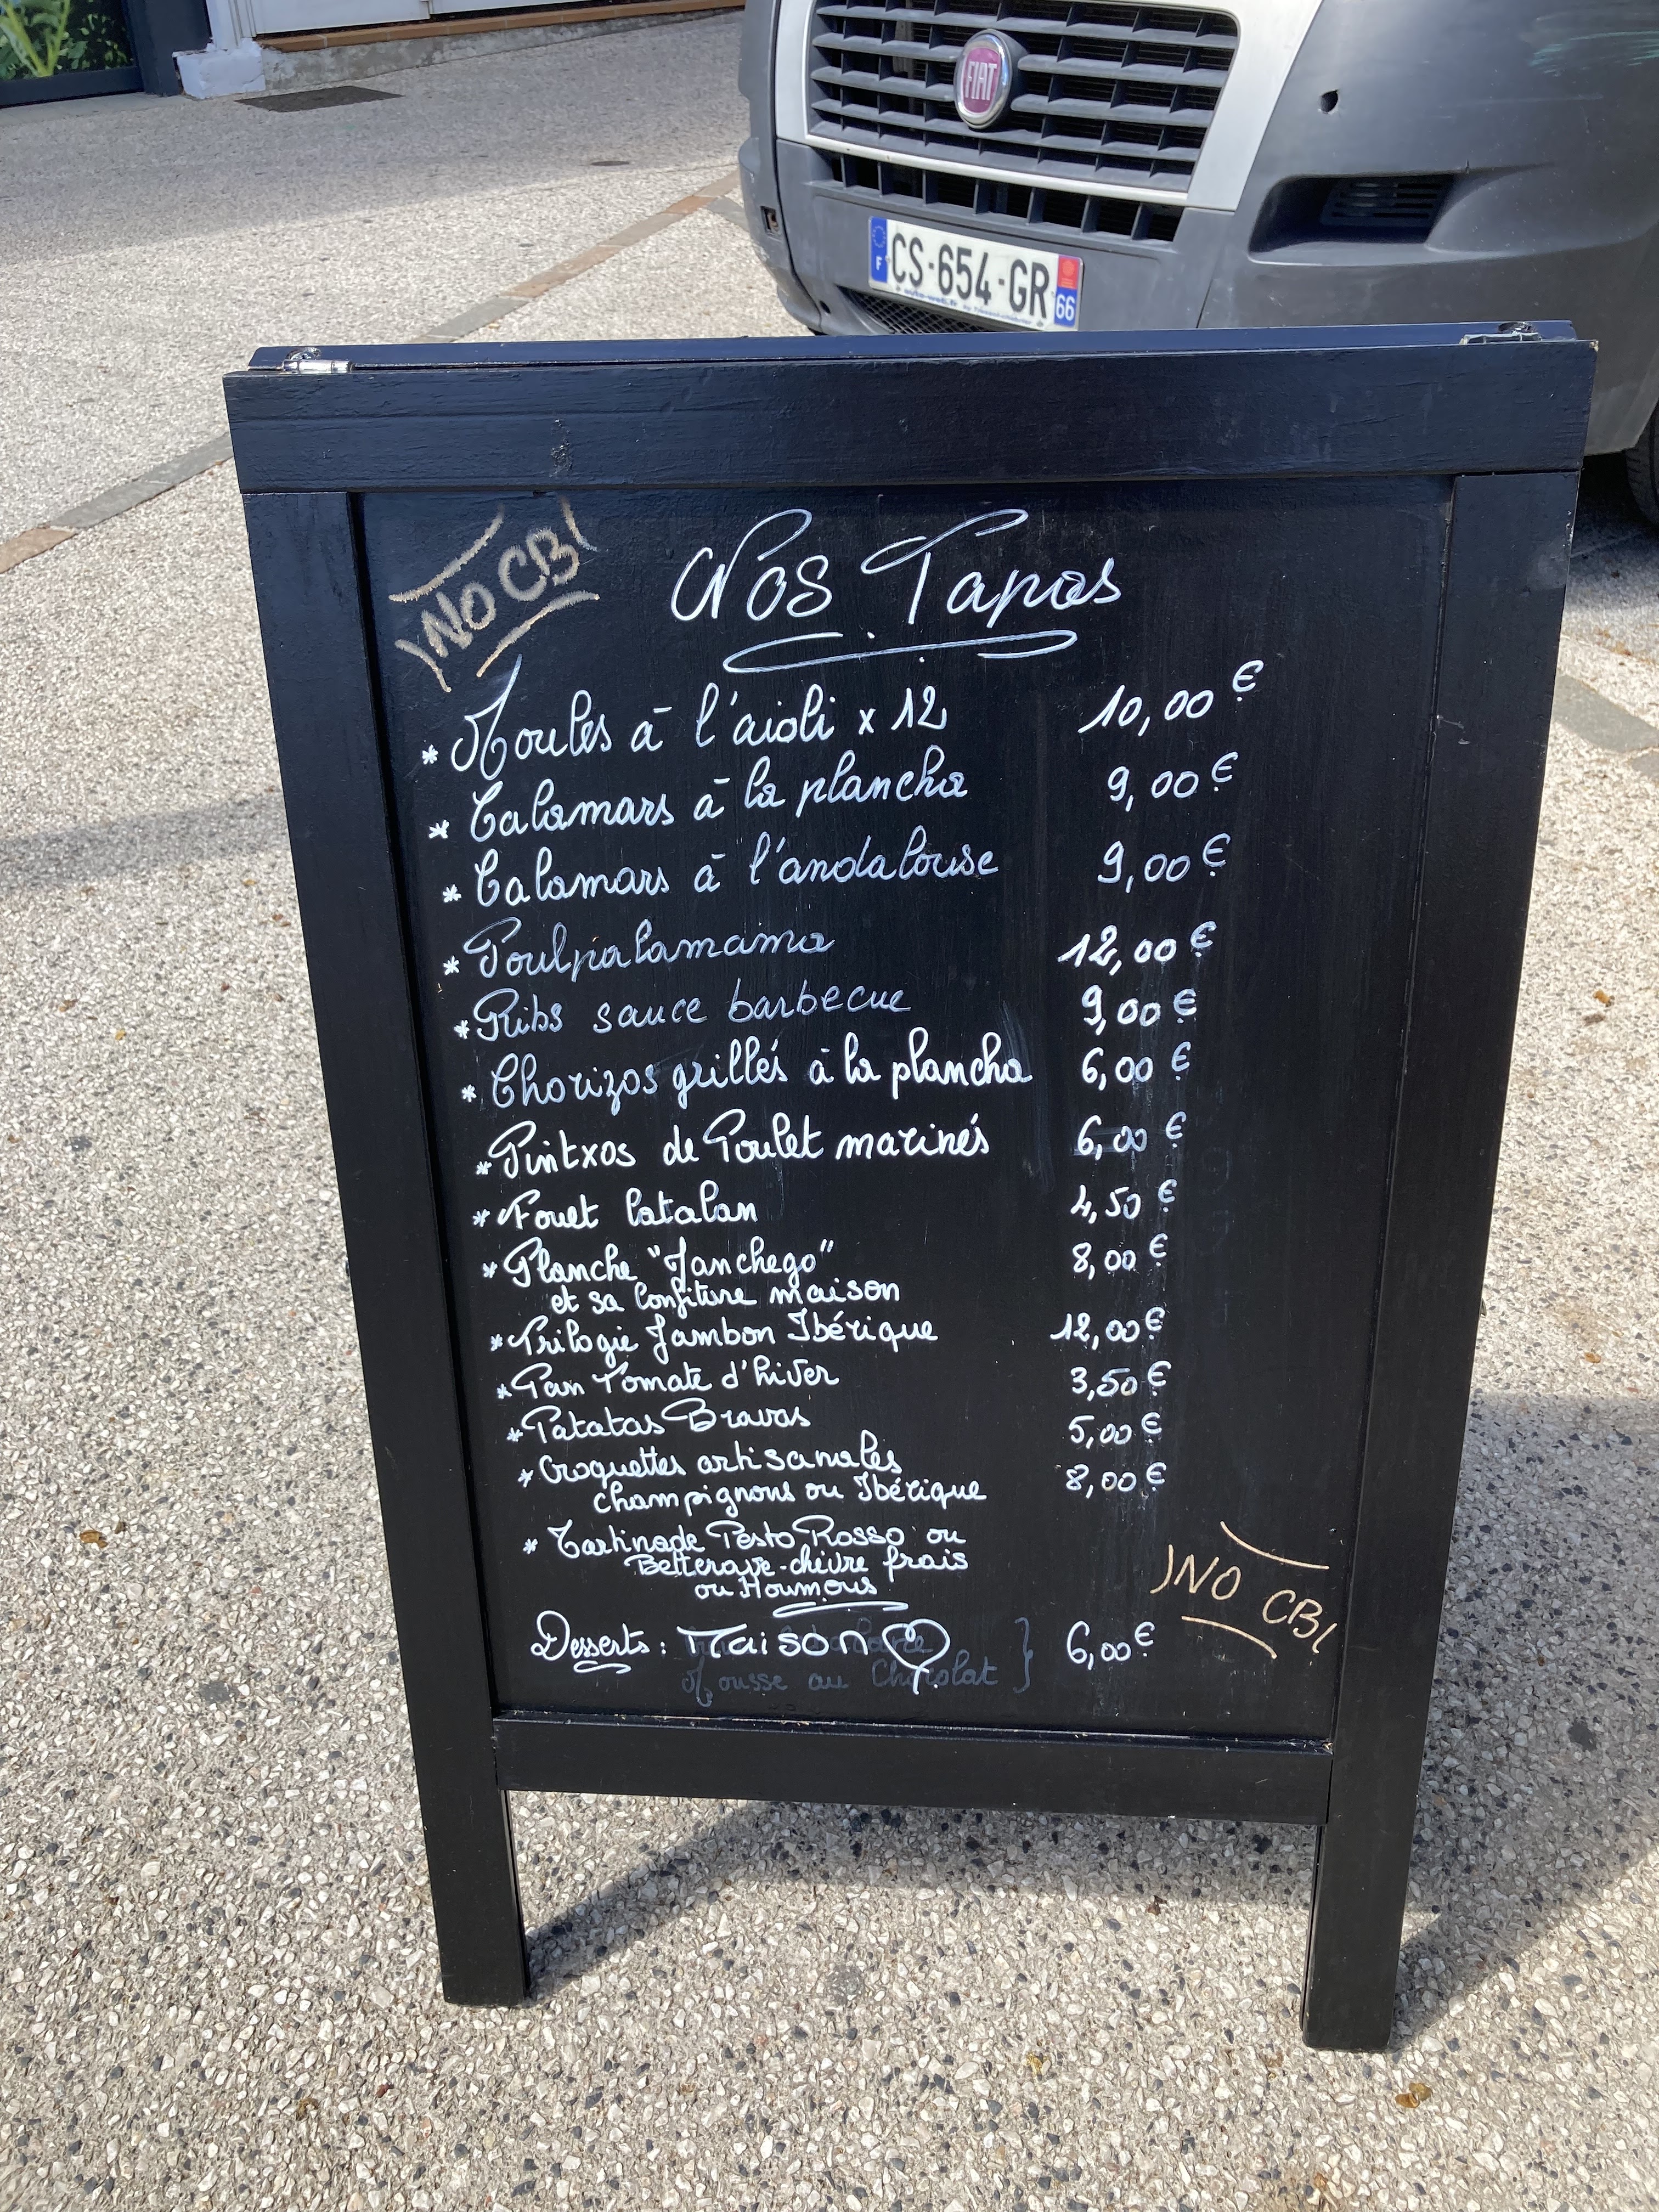 FIAT
CS-654-GR
66
F
NO CB
Nos Tapas
* Moules à l'aïoli x 12 10,00 €
* Calamars à la plancha 9,00 €
* Calamars à l'andalouse 9,00 €
* Poulpalamama 12,00 €
* Ribs sauce barbecue 9,00 €
* Chorizos grillés à la plancha 6,00 €
* Pintxos de Poulet marinés 6,00 €
* Fouet Catalan 4,50 €
* Planche "Manchego" 8,00 €
et sa Confiture maison
* Trilogie Jambon Ibérique 12,00 €
* Pan Tomate d'hiver 3,50 €
* Patatas Bravas 5,00 €
* Croquettes artisanales
champignons ou Ibérique 8,00 €
* Tartinade Pesto Rosso ou
Betterave-chèvre frais
ou Houmous
Desserts : Maison 6,00 €
Mousse au Chocolat
NO CB